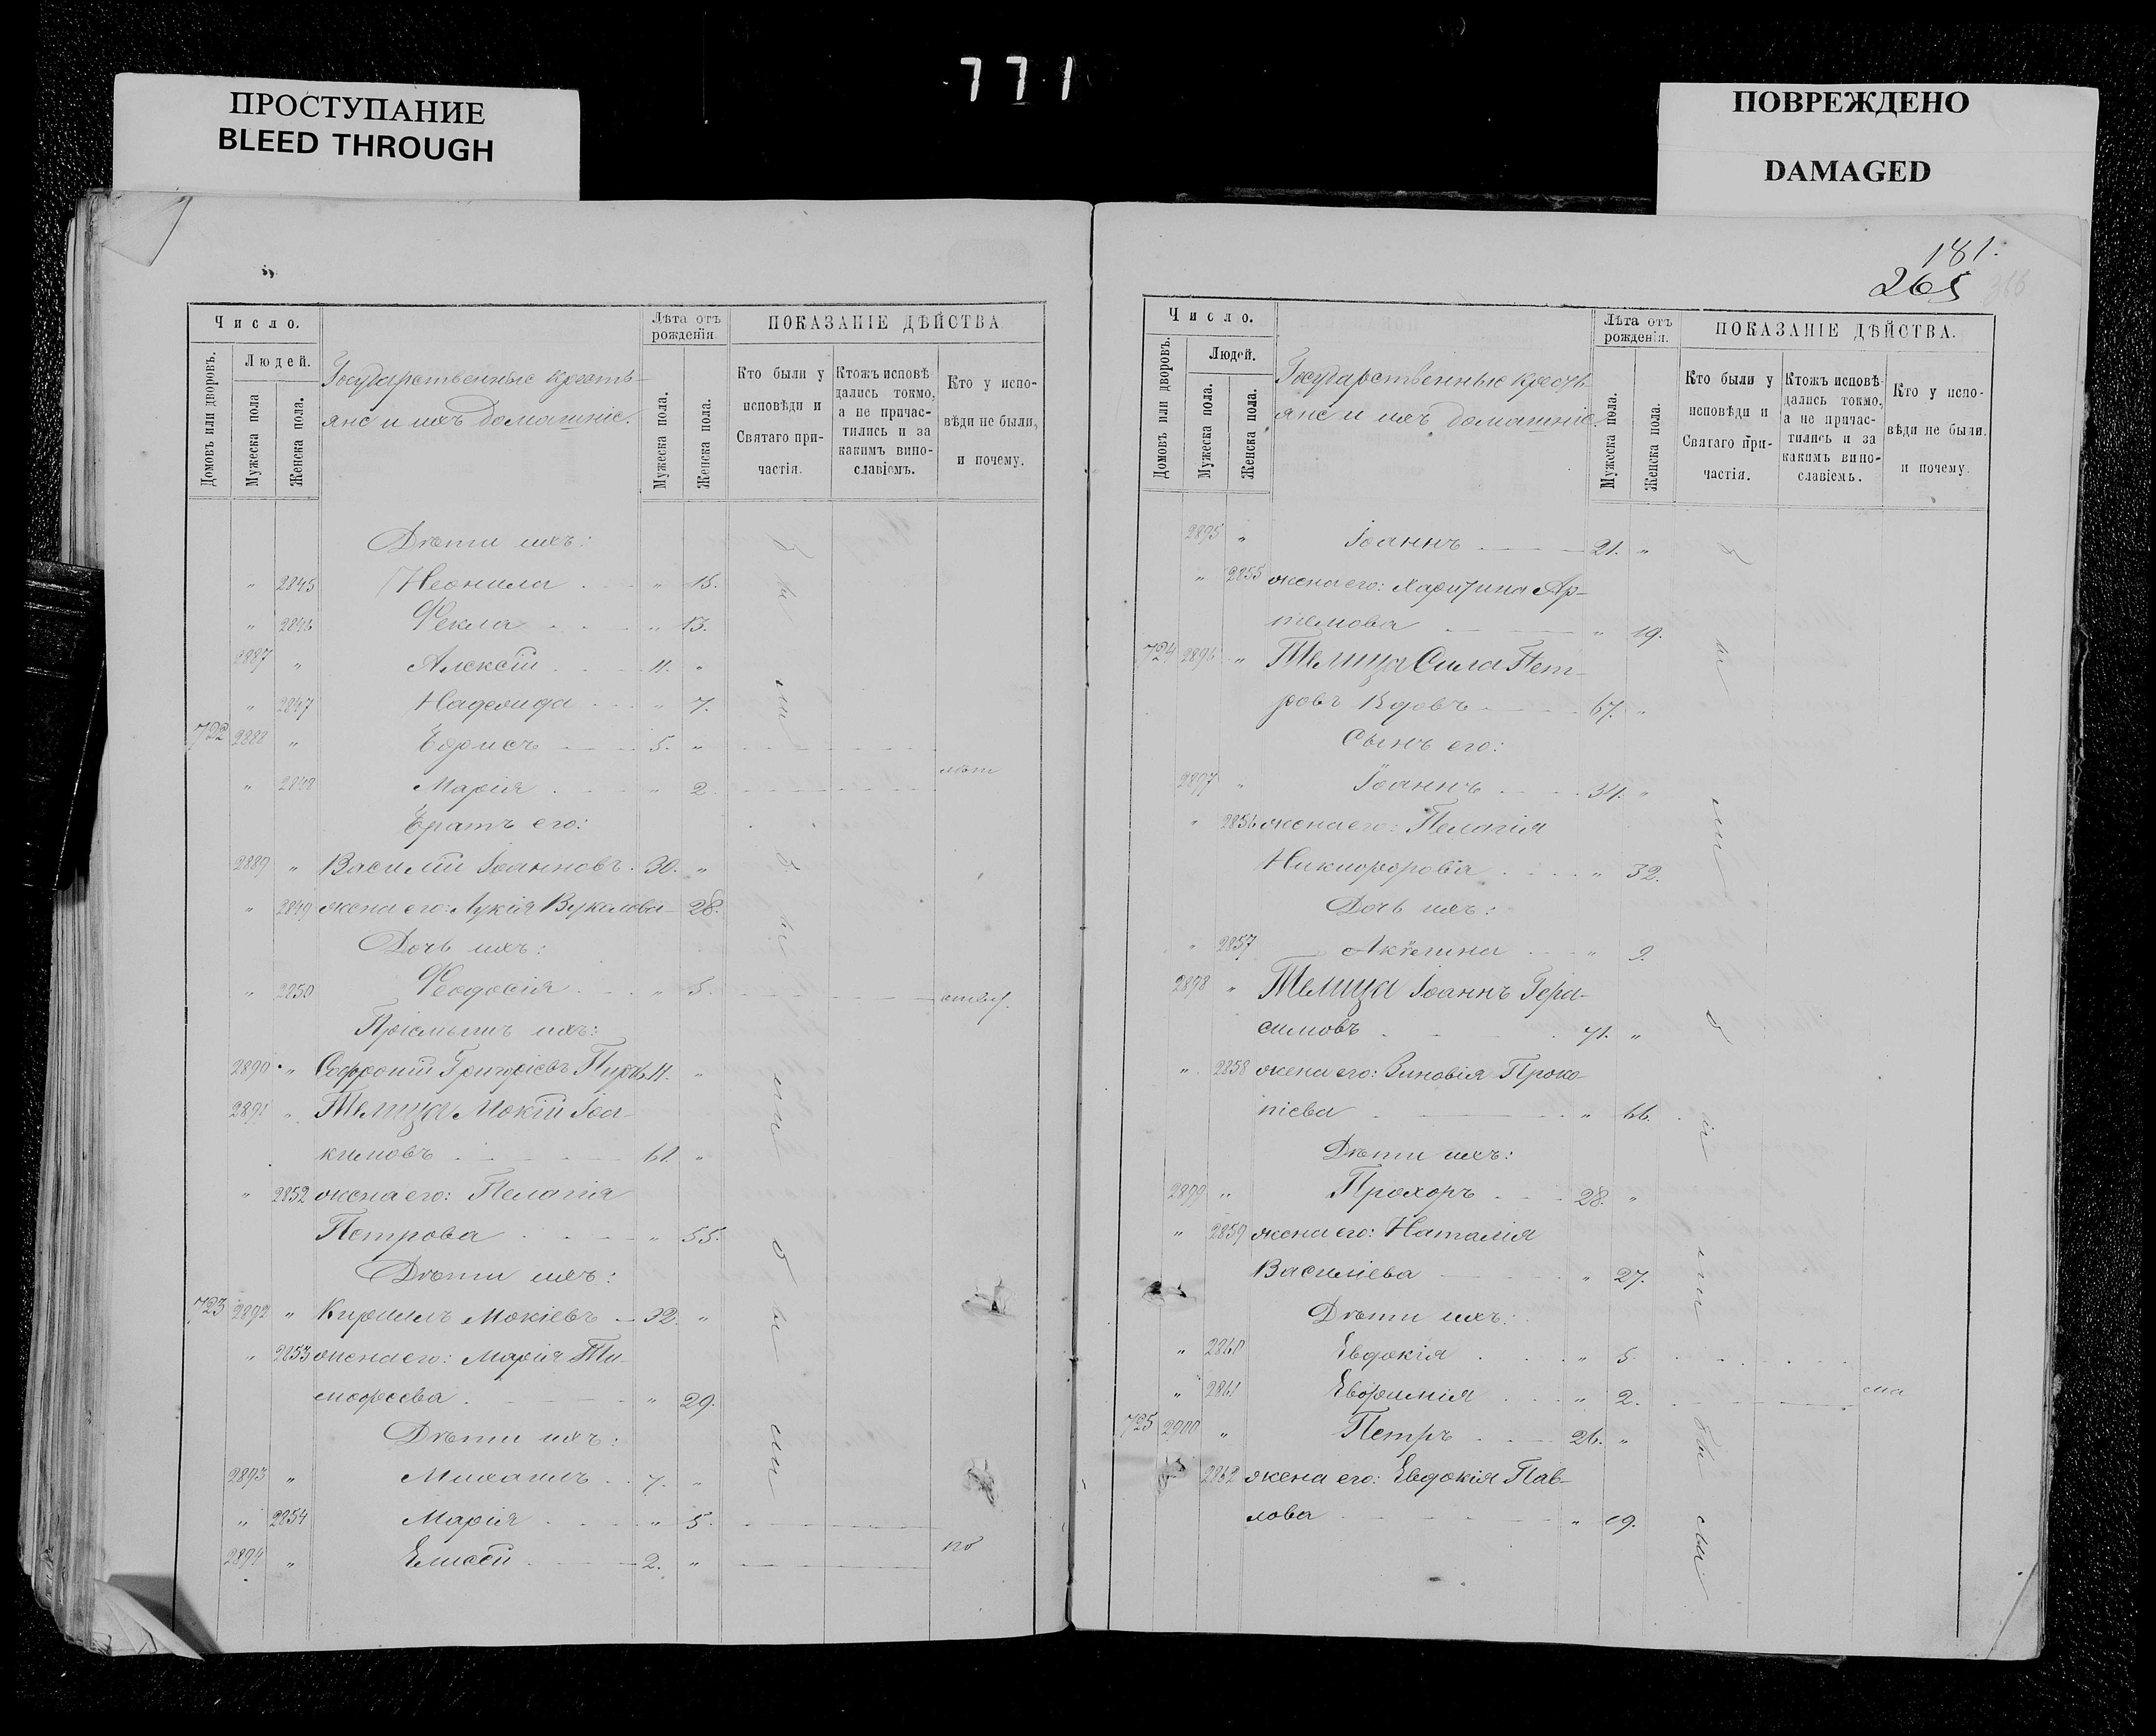 771
ПРОСТУПАНИЕ
BLEED THROUGH
ПОВРЕЖДЕНО
DAMAGED
Число.
Домовъ или дворовъ.
Людей.
Мужеска пола
Женска пола.
Государственные кресть-
яне и ихъ домашніе.
Лѣта отъ
рожденія
Мужеска пола.
Женска пола.
ПОКАЗАНІЕ ДѢЙСТВА
Кто были у
исповѣди и
Святаго при-
частія.
Ктожъ исповѣ-
дались токмо,
а не причас-
тились и за
какимъ вино-
славіемъ.
Кто у испо-
вѣди не были,
и почему.
Дѣти ихъ:
" 2845 Неонила " 15.
" 2846 Фекла " 13.
2887 " Алексій 11. "
" 2847 " 7.
722 2888 " Борисъ 5. "
" 2848 Марія " 2.
Братъ его:
2889 " Василій Іоанновъ. 30. "
" 2849 жена его: Лукія Вуколова 28.
Дочь ихъ:
" 2850 Феодосія " 5.
Пріемышъ ихъ:
2890 " Софроній Григоріевъ 11. "
2891 " Телица Мокій Іоа-
кимовъ 61. "
" 2852 жена его: Пелагія
Петрова " 55.
Дѣти ихъ:
723 2892 " Кириллъ Мокіевъ 32. "
" 2853 жена его: Марія Ти-
мофеева " 29.
Дѣти ихъ:
2893 " Михаилъ 7. "
" 2854 Марія " 5.
2894 " Елисей 2. "
181.
265
Число.
Домовъ или дворовъ.
Людей.
Мужеска пола.
Женска пола.
Государственные кресть-
яне и ихъ домашніе
Лѣта отъ
рожденія.
Мужеска пола.
Женска пола.
ПОКАЗАНІЕ ДѢЙСТВА.
Кто были у
исповѣди и
Святаго при-
частія.
Ктожъ исповѣ-
дались токмо,
а не причас-
тились и за
какимъ вино-
славіемъ.
Кто у испо-
вѣди не были.
и почему.
2895 " Іоаннъ 21. "
" 2855 жена его: Харитина Ар-
темова " 19.
724 2896 " Телица Сила Пет-
ровъ Вдовъ 67. "
Сынъ его:
2897 " Іоаннъ 34. "
" 2856 жена его: Пелагія
Никифорова " 32.
Дочь ихъ:
" 2857 Акилина " 9.
2898 " Телица Іоаннъ Гера-
симовъ 71. "
" 2858 жена его: Зиновія Проко-
піева " 66.
Дѣти ихъ:
2899 " Прохоръ 28. "
" 2859 жена его: Наталія
Василіева " 27.
Дѣти ихъ:
" 2860 Евдокія " 5.
" 2861 Евфимія " 2.
725 2900 " Петръ 26. "
2862 жена его: Евдокія Пав-
лова " 19.